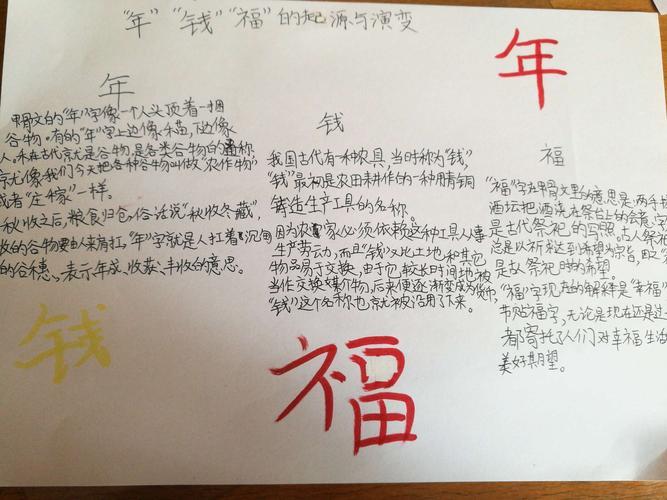 "年" "钱" "福" 的起源与演变
年
年
甲骨文的"年"字像一个人头顶着一捆
谷物。有的"年"字上边像禾苗,下边像
人。禾在古代就是谷物,是各类谷物的通称
就像我们今天把各种谷物叫做"农作物"
或者"庄稼"一样。
秋收之后,粮食归仓,俗话说"秋收冬藏",
收的谷物要由人来肩扛,"年"字就是人扛着沉甸
的谷穗。表示年成、收获、丰收的意思。
钱
钱
我国古代有一种农具,当时称为"钱",
"钱"最初是农田耕作的一种用青铜
铸造生产工具的名称。
因为农家必须依赖这种工具从事
生产劳动,而且"钱"又比土地和其它
物品易于交换,由于它较长时间地被
当作交换媒介物,后来便逐渐变成为货币,
"钱"这个名称也就被沿用了下来。
福
福
"福"字在甲骨文里的意思是:两手捧
酒坛把酒浇在祭台上的会意字
是古代祭祀的写照。古人祭祀
总是以祈求达到希望为宗旨,
是故祭祀时的希望。
"福"字现在的解释是"幸福"
节贴福字,无论是现在还是过
都寄托了人们对幸福生活
美好期望。